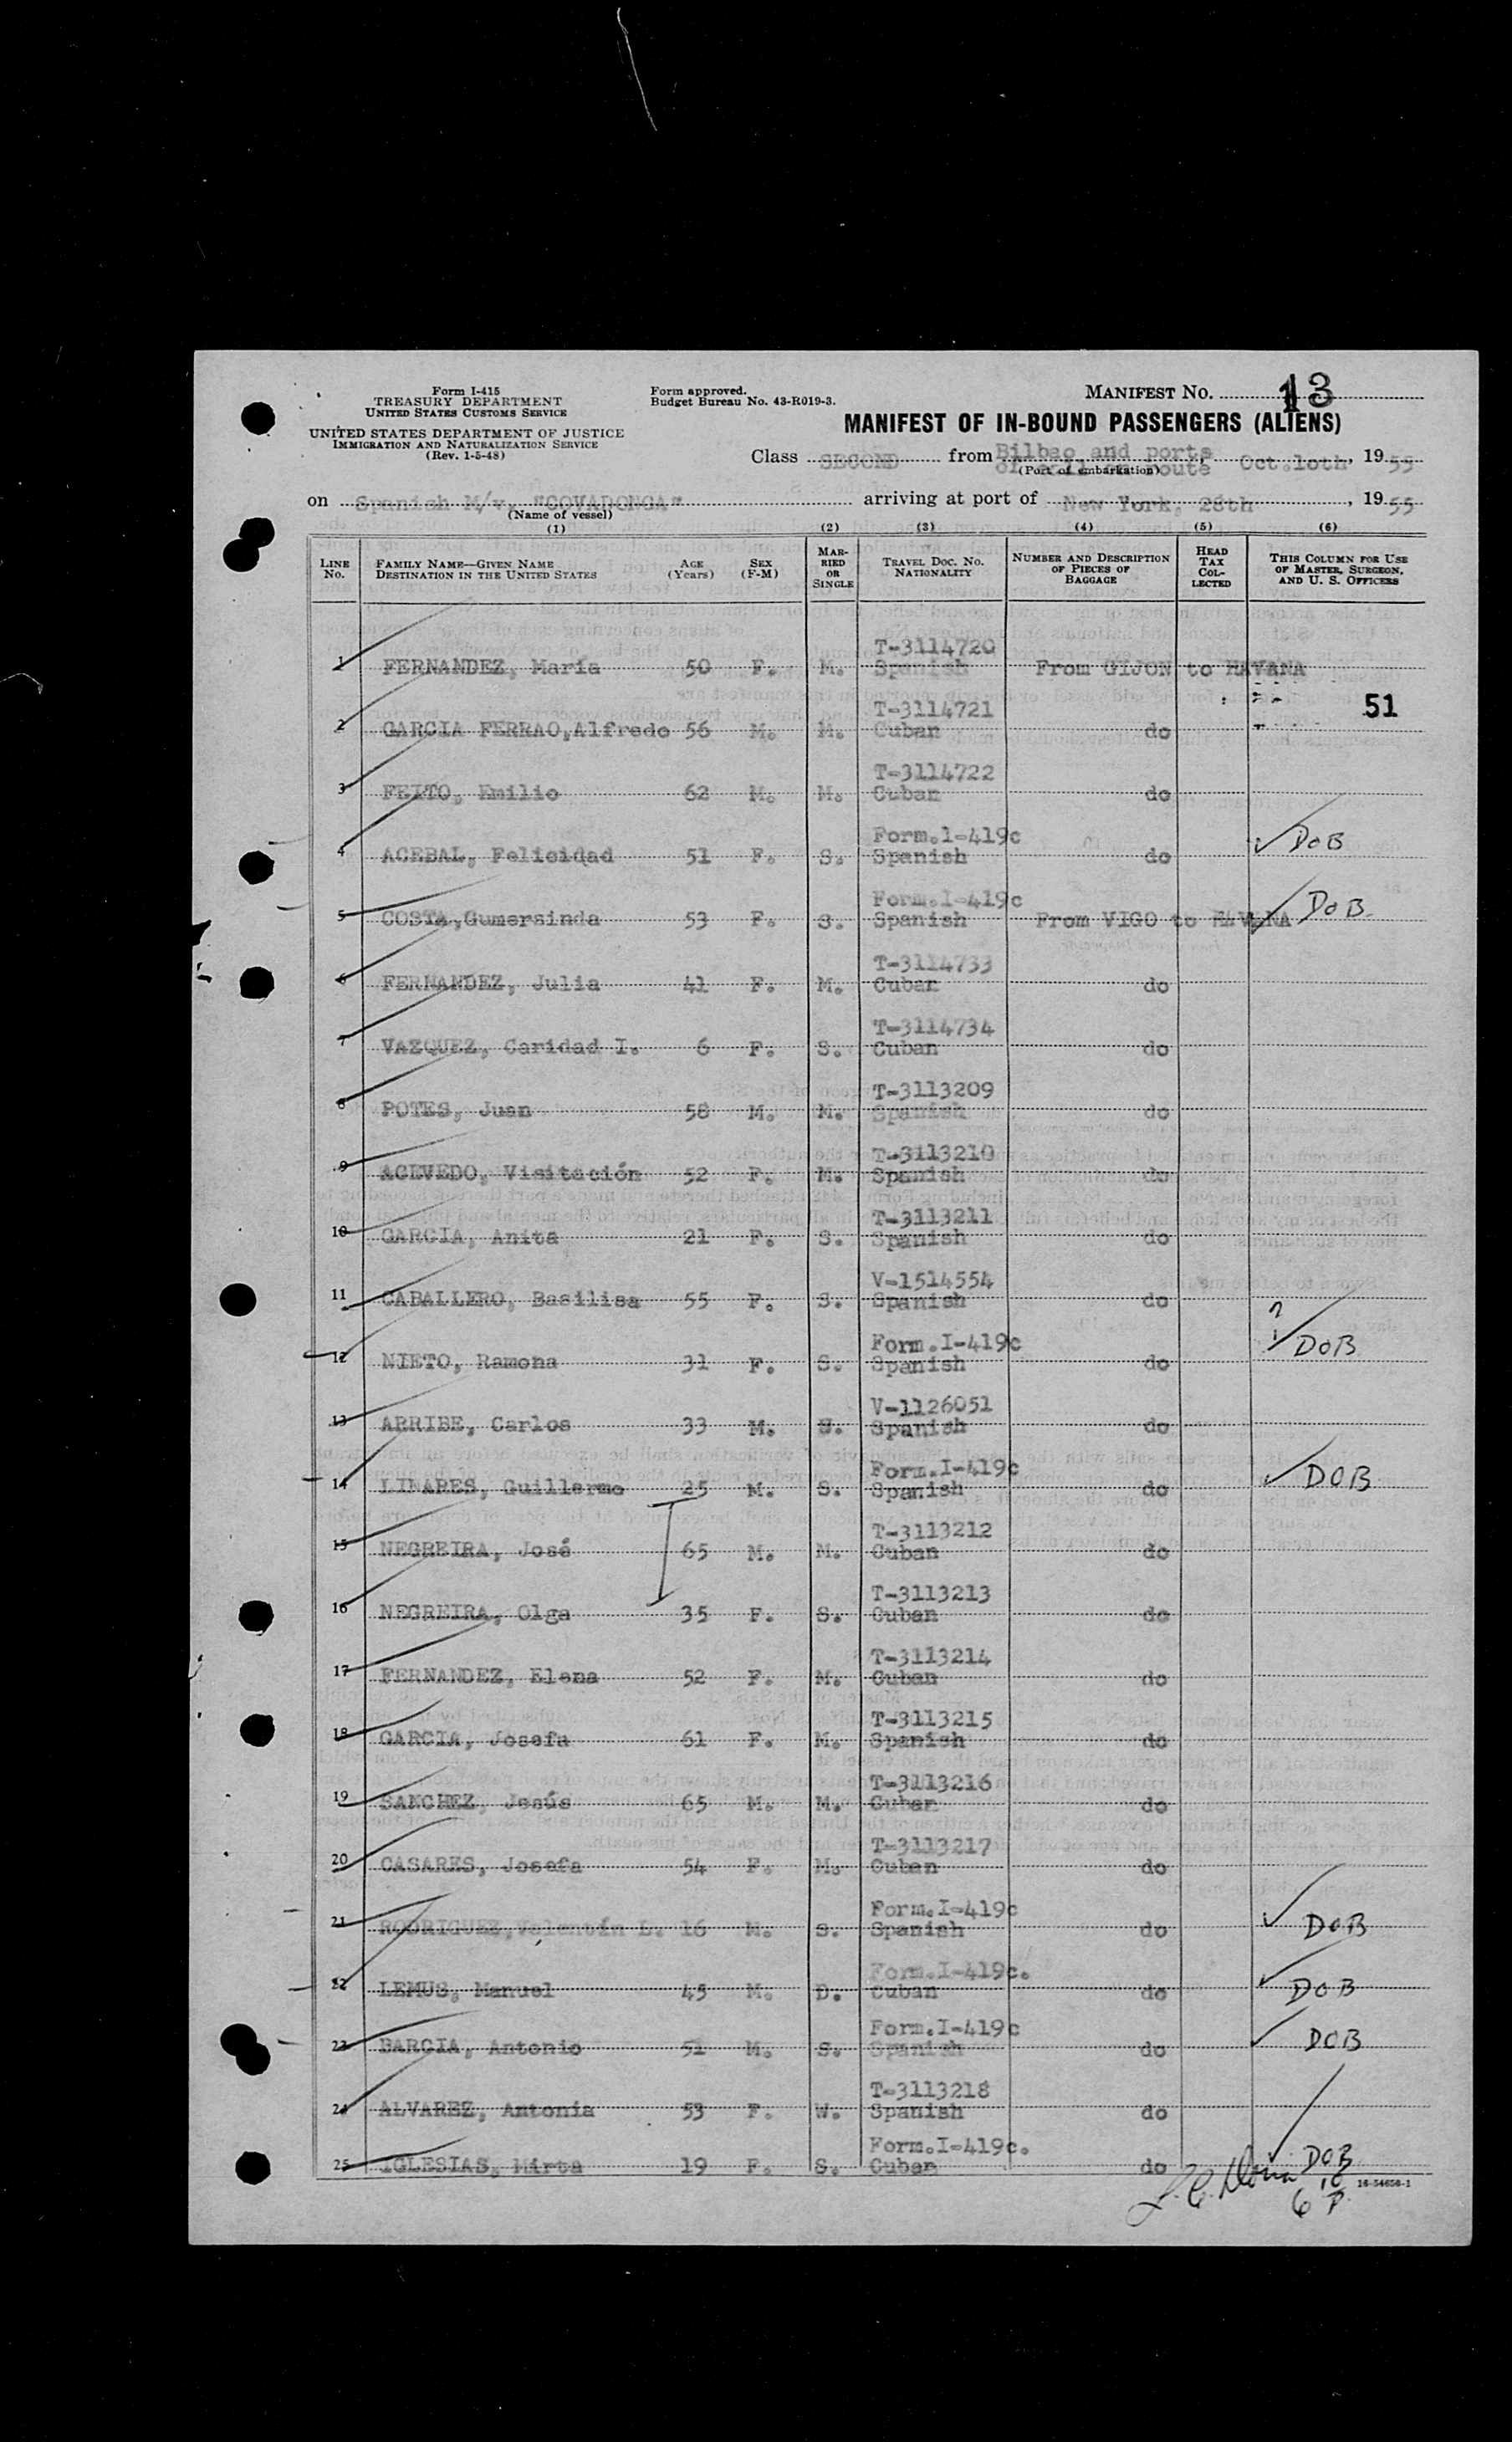 Form I-415
TREASURY DEPARTMENT
UNITED STATES CUSTOMS SERVICE
UNITED STATES DEPARTMENT OF JUSTICE
IMMIGRATION AND NATURALIZATION SERVICE
(Rev. 1-5-48)
Form approved.
Budget Bureau No. 43-R019-3.
MANIFEST No. 13
MANIFEST OF IN-BOUND PASSENGERS (ALIENS)
Class SECOND from Bilbao and ports Oct.10th, 1955
(Port of embarkation) route
on Spanish M/v. "COVADONGA" arriving at port of New York, 28th, 1955
(Name of vessel)
(1) (2) (3) (4) (5) (6)
LINE No. FAMILY NAME—GIVEN NAME DESTINATION IN THE UNITED STATES AGE (Years) SEX (F-M) MARRIED OR SINGLE TRAVEL DOC. NO. NATIONALITY NUMBER AND DESCRIPTION OF PIECES OF BAGGAGE HEAD TAX COLLECTED THIS COLUMN FOR USE OF MASTER, SURGEON, AND U. S. OFFICERS
T-3114720
1 FERNANDEZ, María 50 F. M. Spanish From GIJON to HAVANA
51
T-3114721
2 GARCIA FERRAO,Alfredo 56 M. M. Cuban do
T-3114722
3 FEITO, Emilio 62 M. M. Cuban do
Form.1-419c
4 ACEBAL, Felicidad 51 F. S. Spanish do DOB
Form.I-419c
5 COSTA,Gumersinda 53 F. S. Spanish From VIGO to HAVANA DOB
T-3114733
6 FERNANDEZ, Julia 41 F. M. Cuban do
T-3114734
7 VAZQUEZ, Caridad I. 6 F. S. Cuban do
T-3113209
8 POTES, Juan 58 M. M. Spanish do
T-3113210
9 ACEVEDO, Visitación 52 F. M. Spanish do
T-3113211
10 GARCIA, Anita 21 F. S. Spanish do
V-1514554
11 CABALLERO, Basilisa 55 F. S. Spanish do
Form.I-419c
12 NIETO, Ramona 31 F. S. Spanish do ? DOB
V-1126051
13 ARRIBE, Carlos 33 M. S. Spanish do
Form.I-419c
14 LINARES, Guillermo 25 M. S. Spanish do DOB
T-3113212
15 NEGREIRA, José 65 M. M. Cuban do
T-3113213
16 NEGREIRA, Olga 35 F. S. Cuban do
T-3113214
17 FERNANDEZ, Elena 52 F. M. Cuban do
T-3113215
18 GARCIA, Josefa 61 F. M. Spanish do
T-3113216
19 SANCHEZ, Jesús 65 M. M. Cuban do
T-3113217
20 CASARES, Josefa 54 F. M. Cuban do
Form.I-419c
21 RODRIGUEZ,Valentín L. 16 M. S. Spanish do DOB
Form.I-419c.
22 LEMUS, Manuel 45 M. D. Cuban do DOB
Form.I-419c
23 BARCIA, Antonio 51 M. S. Spanish do DOB
T-3113218
24 ALVAREZ, Antonia 53 F. W. Spanish do
Form.I-419c.
25 IGLESIAS, Mirta 19 F. S. Cuban do DOB
16-54656-1